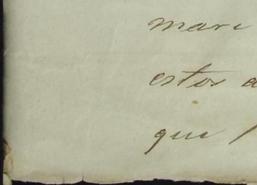 mare
estos a
que